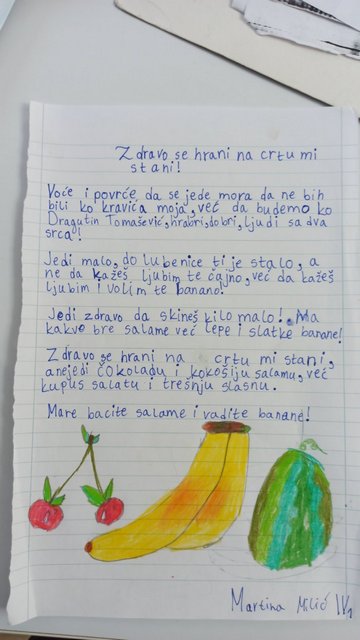 Zdravo se hrani na crtu mi
stani!
Voće i povrće da se jede mora da ne bih
bili ko kravica moja, već da budemo ko
Dragutin Tomašević, hrabri, dobri, ljudi sa dva
srca!
Jedi malo, do lubenice ti je stalo, a
ne da kažeš ljubim te čajno, već da kažeš
ljubim i volim te banano!
Jedi zdravo da skineš kilo malo! Ma
kakve bre salame već lepe i slatke banane!
Zdravo se hrani na crtu mi stani,
anejedi čokoladu i kokošiju salamu, već
kupus salatu i trešnju slasnu.
Mare bacite salame i vadite banane!
Martina Milić IV1